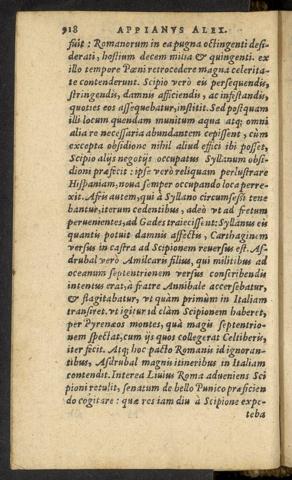 918 APPIANVS ALEX.
fuit: Romanorum in ea pugna octingenti desi-
derati, hostium decem milia & quingenti. ex
illo tempore Pœni retrocedere magna celerita-
te contenderunt. Scipio verò eis persequendis,
stringendis, damnis afficiendis, ac infestandis,
quoties eos assequebatur, institit. Sed postquam
illi locum quendam munitum aqua atq; omni
alia re necessaria abundantem cepissent, cùm
excepta obsidione nihil aliud effici ibi posset,
Scipio alijs negotijs occupatus Syllanum obsi-
dioni præficit: ipse verò reliquam perlustrare
Hispaniam, noua semper occupando loca perre-
xit. Afris autem, qui à Syllano circumsessi tene
bantur, iterum cedentibus, adeò vt ad fretum
peruenientes, ad Gades traiecissent: Syllanus eis
quantis potuit damnis affectis, Carthaginem
versus in castra ad Scipionem reuersus est. As-
drubal verò Amilcaris filius, qui militibus ad
oceanum septentrionem versus conscribendis
intentus erat, à fratre Annibale accersebatur,
& flagitabatur, vt quàm primùm in Italiam
transiret. vt igitur id clàm Scipionem haberet,
per Pyrenæos montes, quà magis septentrio-
nem spectat, cum ijs quos collegerat Celtiberis,
iter fecit. Atq; hoc pacto Romanis id ignoran-
tibus, Asdrubal magnis itineribus in Italiam
contendit. Interea Liuius Roma adueniens Sci
pioni retulit, senatum de bello Punico præficien
do cogitare: quæ res iam diu à Scipione expe-
teba